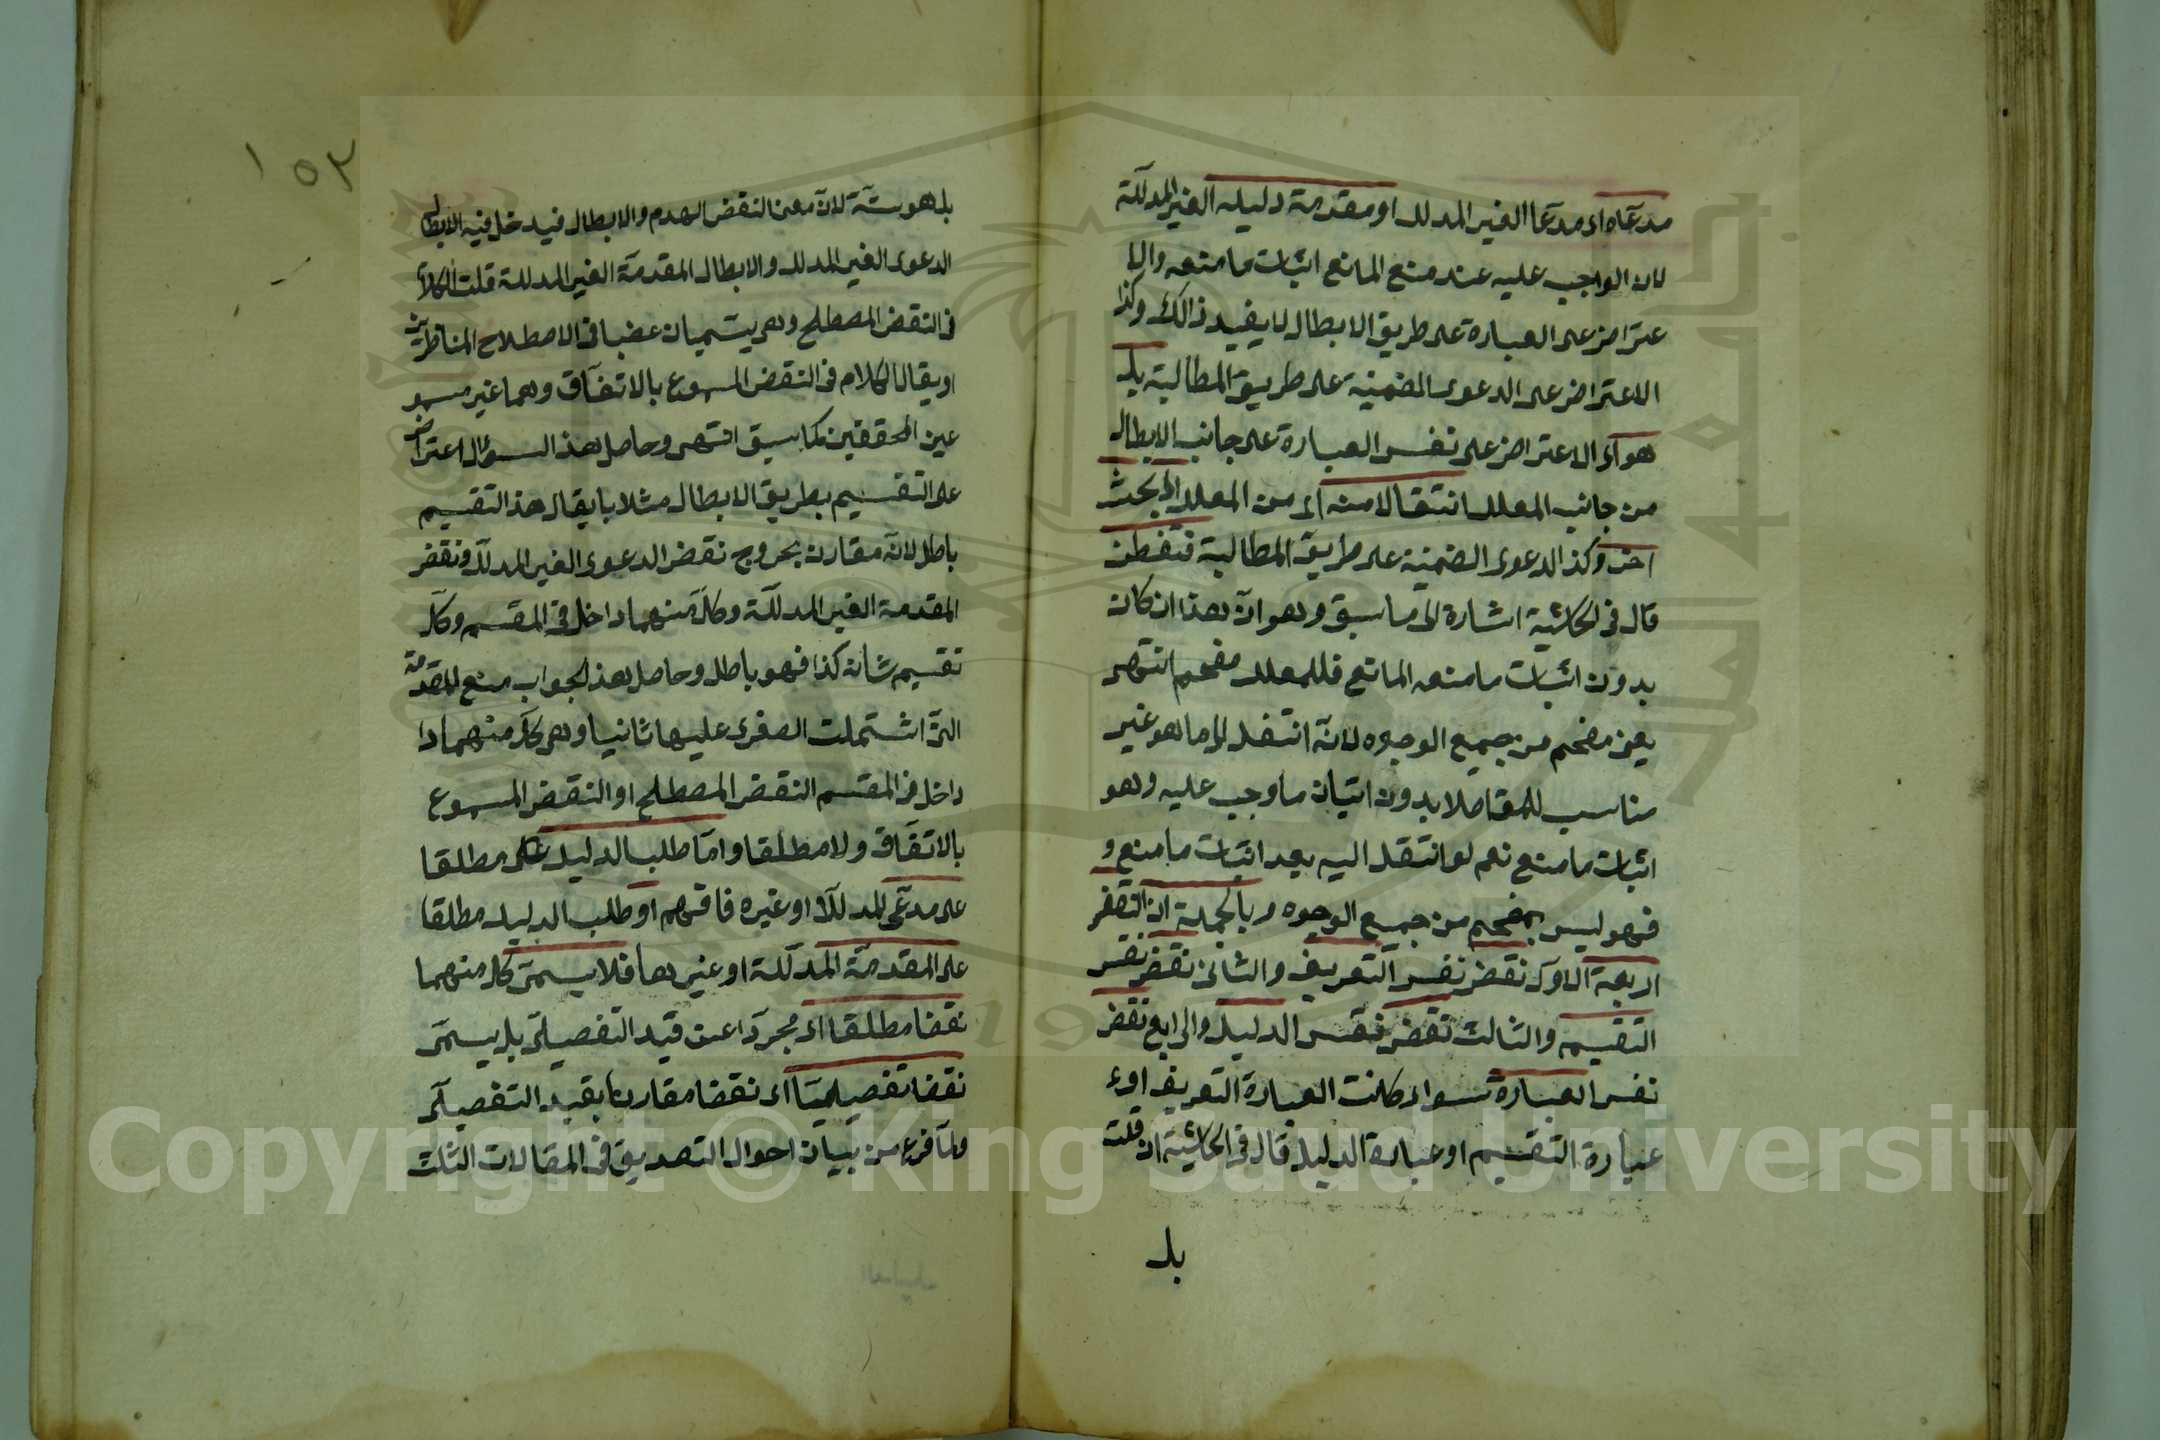 مدعاه اى مدعا الغير المدلل او مقدمة دليله الغير المدللة
لان الواجب عليه عند منع المانع اثبات ما منعه والا
عتراض على العبارة على طريق الابطال لا يفيد ذالك وكذا
الاعتراض على الدعوى الضمنية على طريق المطالبة بل
هو اى الاعتراض على نفس العبارة على جانب الابطال
من جانب المعلل انتقالا منه اى من المعلل الى بحث
اخر وكذ الدعوى الضمنية على طريق المطالبة فتفطن
قال فى الحاشية اشارة الى ما سبق وهو انّ هذا ان كان
بدون اثبات ما منعه المانع فللمعلل مفحم انتهى
يعنى مفحم من جميع الوجوه لانّه انتقل الى ما هو غير
مناسب للمقام لا بدون اتيان ما وجب عليه وهو
اثبات ما منع نعم لو انتقل اليه بعد اثبات ما منع و
فهو ليس بمفحم من جميع الوجوه وبالجملة ان النقض
اربعة الاوّل نقض نفس التعريف والثانى نقض نفس
التقسيم والثالث نقض نفس الدليل والرابع نقض
نفس العبارة سواء كانت العبارة التعريف او ء
عبارة التقسيم او عبارة الدليل قال فى الحاشية ان قلت
بل
١٥٢
بل هو ستّة لانّ معنى النقض الهدم والابطال فيدخل فيه الابطال
الدعوى الغير المدلل والابطال المقدمة الغير المدللة قلت الكلام
فى النقض المصطلح وهى يسّميان غصبا فى الاصطلاح المناظرين
او يقال الكلام فى النقض المسموع بالاتفاق وهما غير مسموعين
عين المحققين كما سبق انتهى وحاصل هذ السؤال اعتراض
على التقسيم بطريق الابطال مثلا با يقال هذ التقسيم
باطل لانّه مقارن بخروج نقض الدعوى الغير المدلّل ونقض
المقدمة الغير المدلّلة وكلّ منهما داخل فى المقسم وكلّ
تقسيم شانه كذا فهو باطل وحاصل هذ الجواب منع المقدمة
التى اشتملت الصغرى عليها ثانيا وهى كلّ منهما دا
داخل فى المقسم النقض المصطلح او النقض المسموع
بالاتفّاق ولا مطلقا وامّا طلب الدليل على مطلقا
على مدعّى المدللا او غيره فافهم او طلب الدليل مطلقا
على المقدمّة المدلّلة او غيرها فلا يسمّى كل منهما
نقضا مطلقا اى مجرّدا عن قيد التفصيلىّ بل يسمّى
نقضا تفصيليّا اى نقضا مقارنا بقيد التفصيلىّ
ولمّا فرغ من بيان احوال التصديق فى المقالات الثلث
Copyright © King Saud University